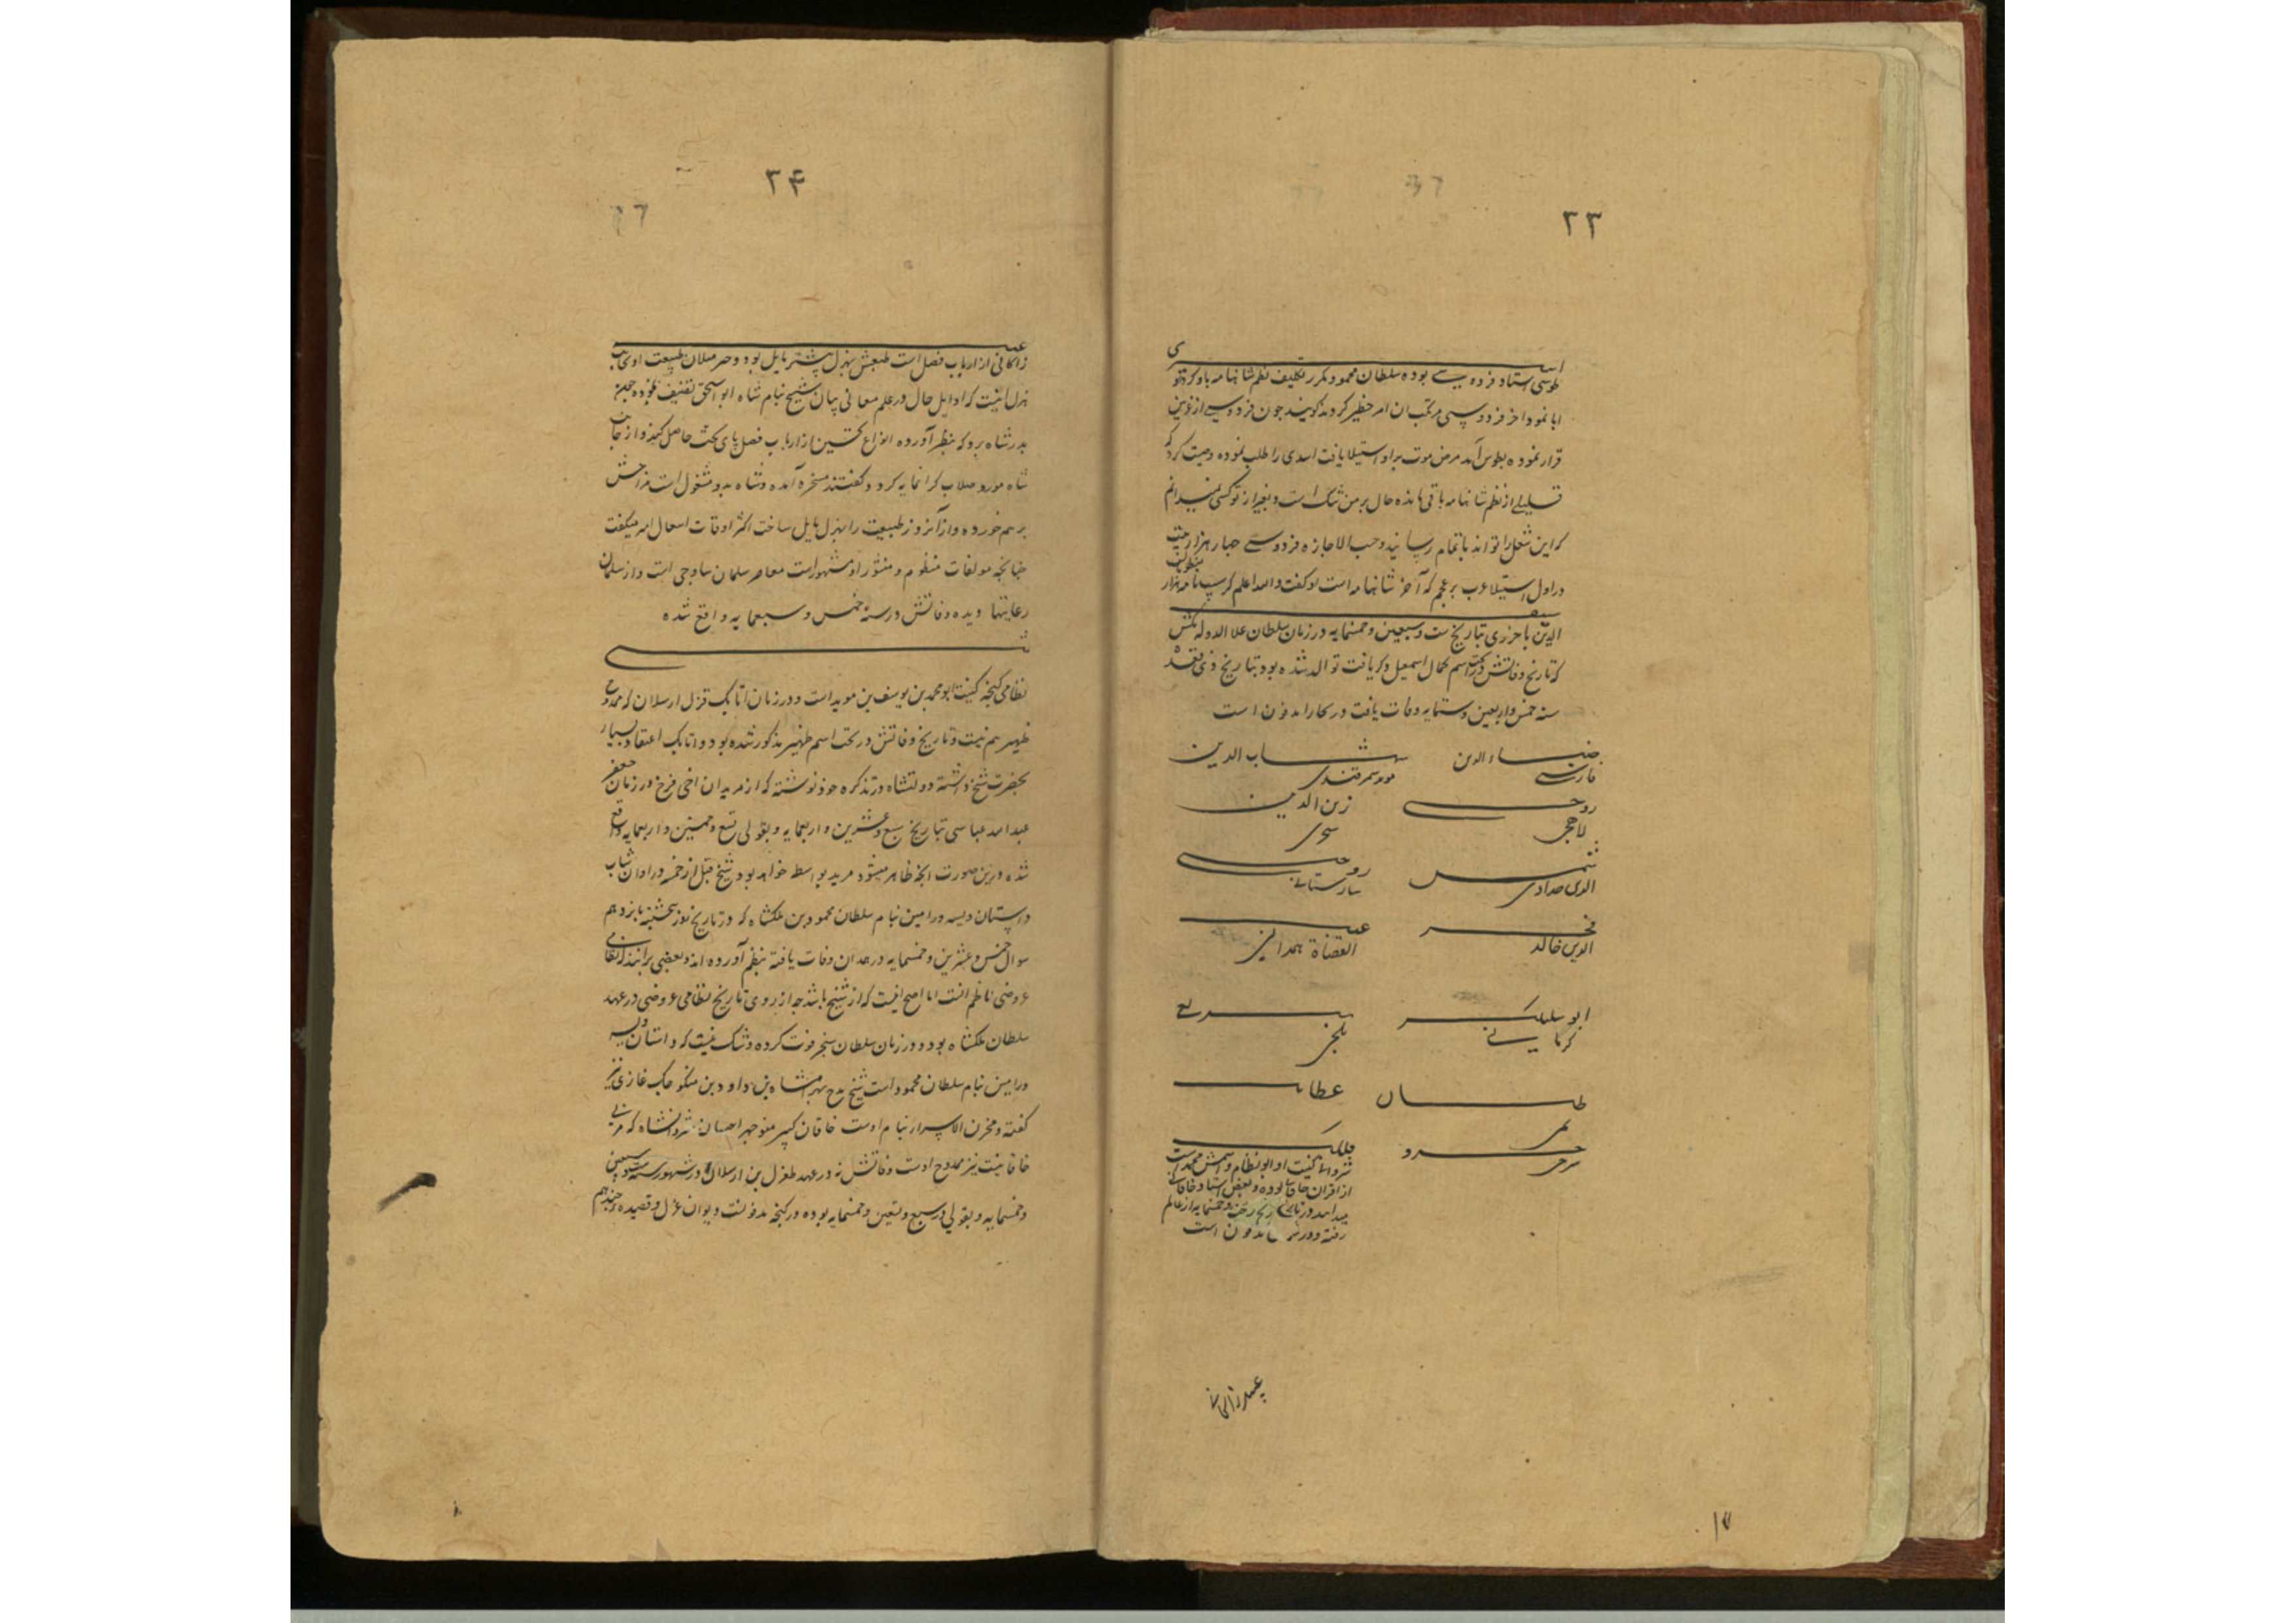 ۳۳
اسدی
طوسی استاد فردوسی بوده سلطان محمود مکرر تکلیف نظم شاهنامه باو کرد او
ابا نمود اخر فردوسی مرتکب ان امر خطیر کردید کویند چون فردوسی از غزنین
فرار نموده بطوس آمد مرض موت بر او استیلا یافت اسدی را طلب نموده وصیت کرد که
قلیلی از نظم شاهنامه باقی مانده حال بر من تنک است و بغیر از تو کسی نمیدانم
که این شغل را تواند باتمام رسانید و حسب الاجازه فردوسی چهار هزار بیت
در اول استیلا عرب بر عجم که آخر شاهنامه است او کفت والله اعلم کرسب نامه نیز از
سیف
الدین باخرزی بتاریخ ست و سبعین و خمسمایه در زمان سلطان علا الدوله تکش
که تاریخ وفاتش در تحت اسم کمال اسمعیل ذکر یافت توالد شده بود بتاریخ ذی قعده
سنه خمس و اربعین و ستمایه وفات یافت در بخارا مدفون است
ضیاء الدین فارسی
شهاب الدین سمرقندی
روحی
زین الدین سجزی
شمس الدین حدادی
روحی
فخر الدین خالد
عین القضاة همدانی
ابو سلیک کرمانی
بلخی
عطار
خسرو
فلکی
شروانی کنیت او ابو نظام و اسمش محمد است
از اقران خاقانی بوده و بعضی استاد خاقانی
رفته و در مدفون است
عبید زاکانی
۳۴
عبید
زاکانی از ارباب فضل است طبعش بهزل بیشتر مایل بود و وجه میلان طبیعت او بجانب
هزل اینست که اوایل حال در علم معانی بیان نسخۀ بنام شاه ابو اسحق تصنیف نموده بجهة
پدر شاه برد که بنظر آورده انواع تحسین از ارباب فضل پای تخت حاصل کند و از جانب
شاه مورد صلات کرانمایه کردد کفتند مسخره آمده و شاه بدو مشغول است مزاجش
بر هم خورده و از آنروز طبیعت را بهزل مایل ساخت اکثر اوقات اشعار میکفت
چنانچه مولفات منظوم و منثور او مشهور است معاصر سلمان ساوجی است و از سلمان
رعایتها دیده وفاتش در سنۀ خمس و سبعمایه واقع شده
نظامی کنجه کنیت ابو محمد بن یوسف بن موید است و در زمان اتابک قزل ارسلان که ممدوح
ظهیر هم نیست و تاریخ وفاتش در تحت اسم ظهیر مذکور شده بود و اتابک اعتقاد بسیار
بحضرت شیخ داشته دولتشاه در تذکره خود نوشته که از مریدان اخی فرخ در زمان
عبد الله عباسی بتاریخ سبع و عشرین و اربعمایه و بقولی تسع و خمسین و اربعمایه واقع
شده درین صورت انچه ظاهر میشود مرید بواسطه خواهد بود شیخ قبل از خمسه در اوان شباب
داستان ویسه و رامین بنام سلطان محمود بن ملکشاه که در تاریخ روز پنجشنبه یازدهم
شوال خمس و عشرین و خمسمایه در همدان وفات یافته بنظم آورده اند و بعضی برانند که نظامی
عروضی ناظم انست اما اصح اینست که از شیخ باشد چه از روی تاریخ نظامی عروضی در عهد
سلطان ملکشاه بوده و در زمان سلطان سنجر فوت کرده و شک نیست که داستان ویسه
و رامین بنام سلطان محمود است شیخ مدح بهرامشاه بن داود بن منکوجک غازی نیز
کفته و مخزن الاسرار بنام اوست خاقان کبیر منوچهر اخسان شروانشاه که مربی
خاقانیست نیز ممدوح اوست وفاتش نه در عهد طغرل بن ارسلان و در شهور سنه ست و سبعین
و خمسمایه و بقولی در سبع و تسعین و خمسمایه بوده در کنجه مدفونست دیوان غزل و قصیده و چند هم